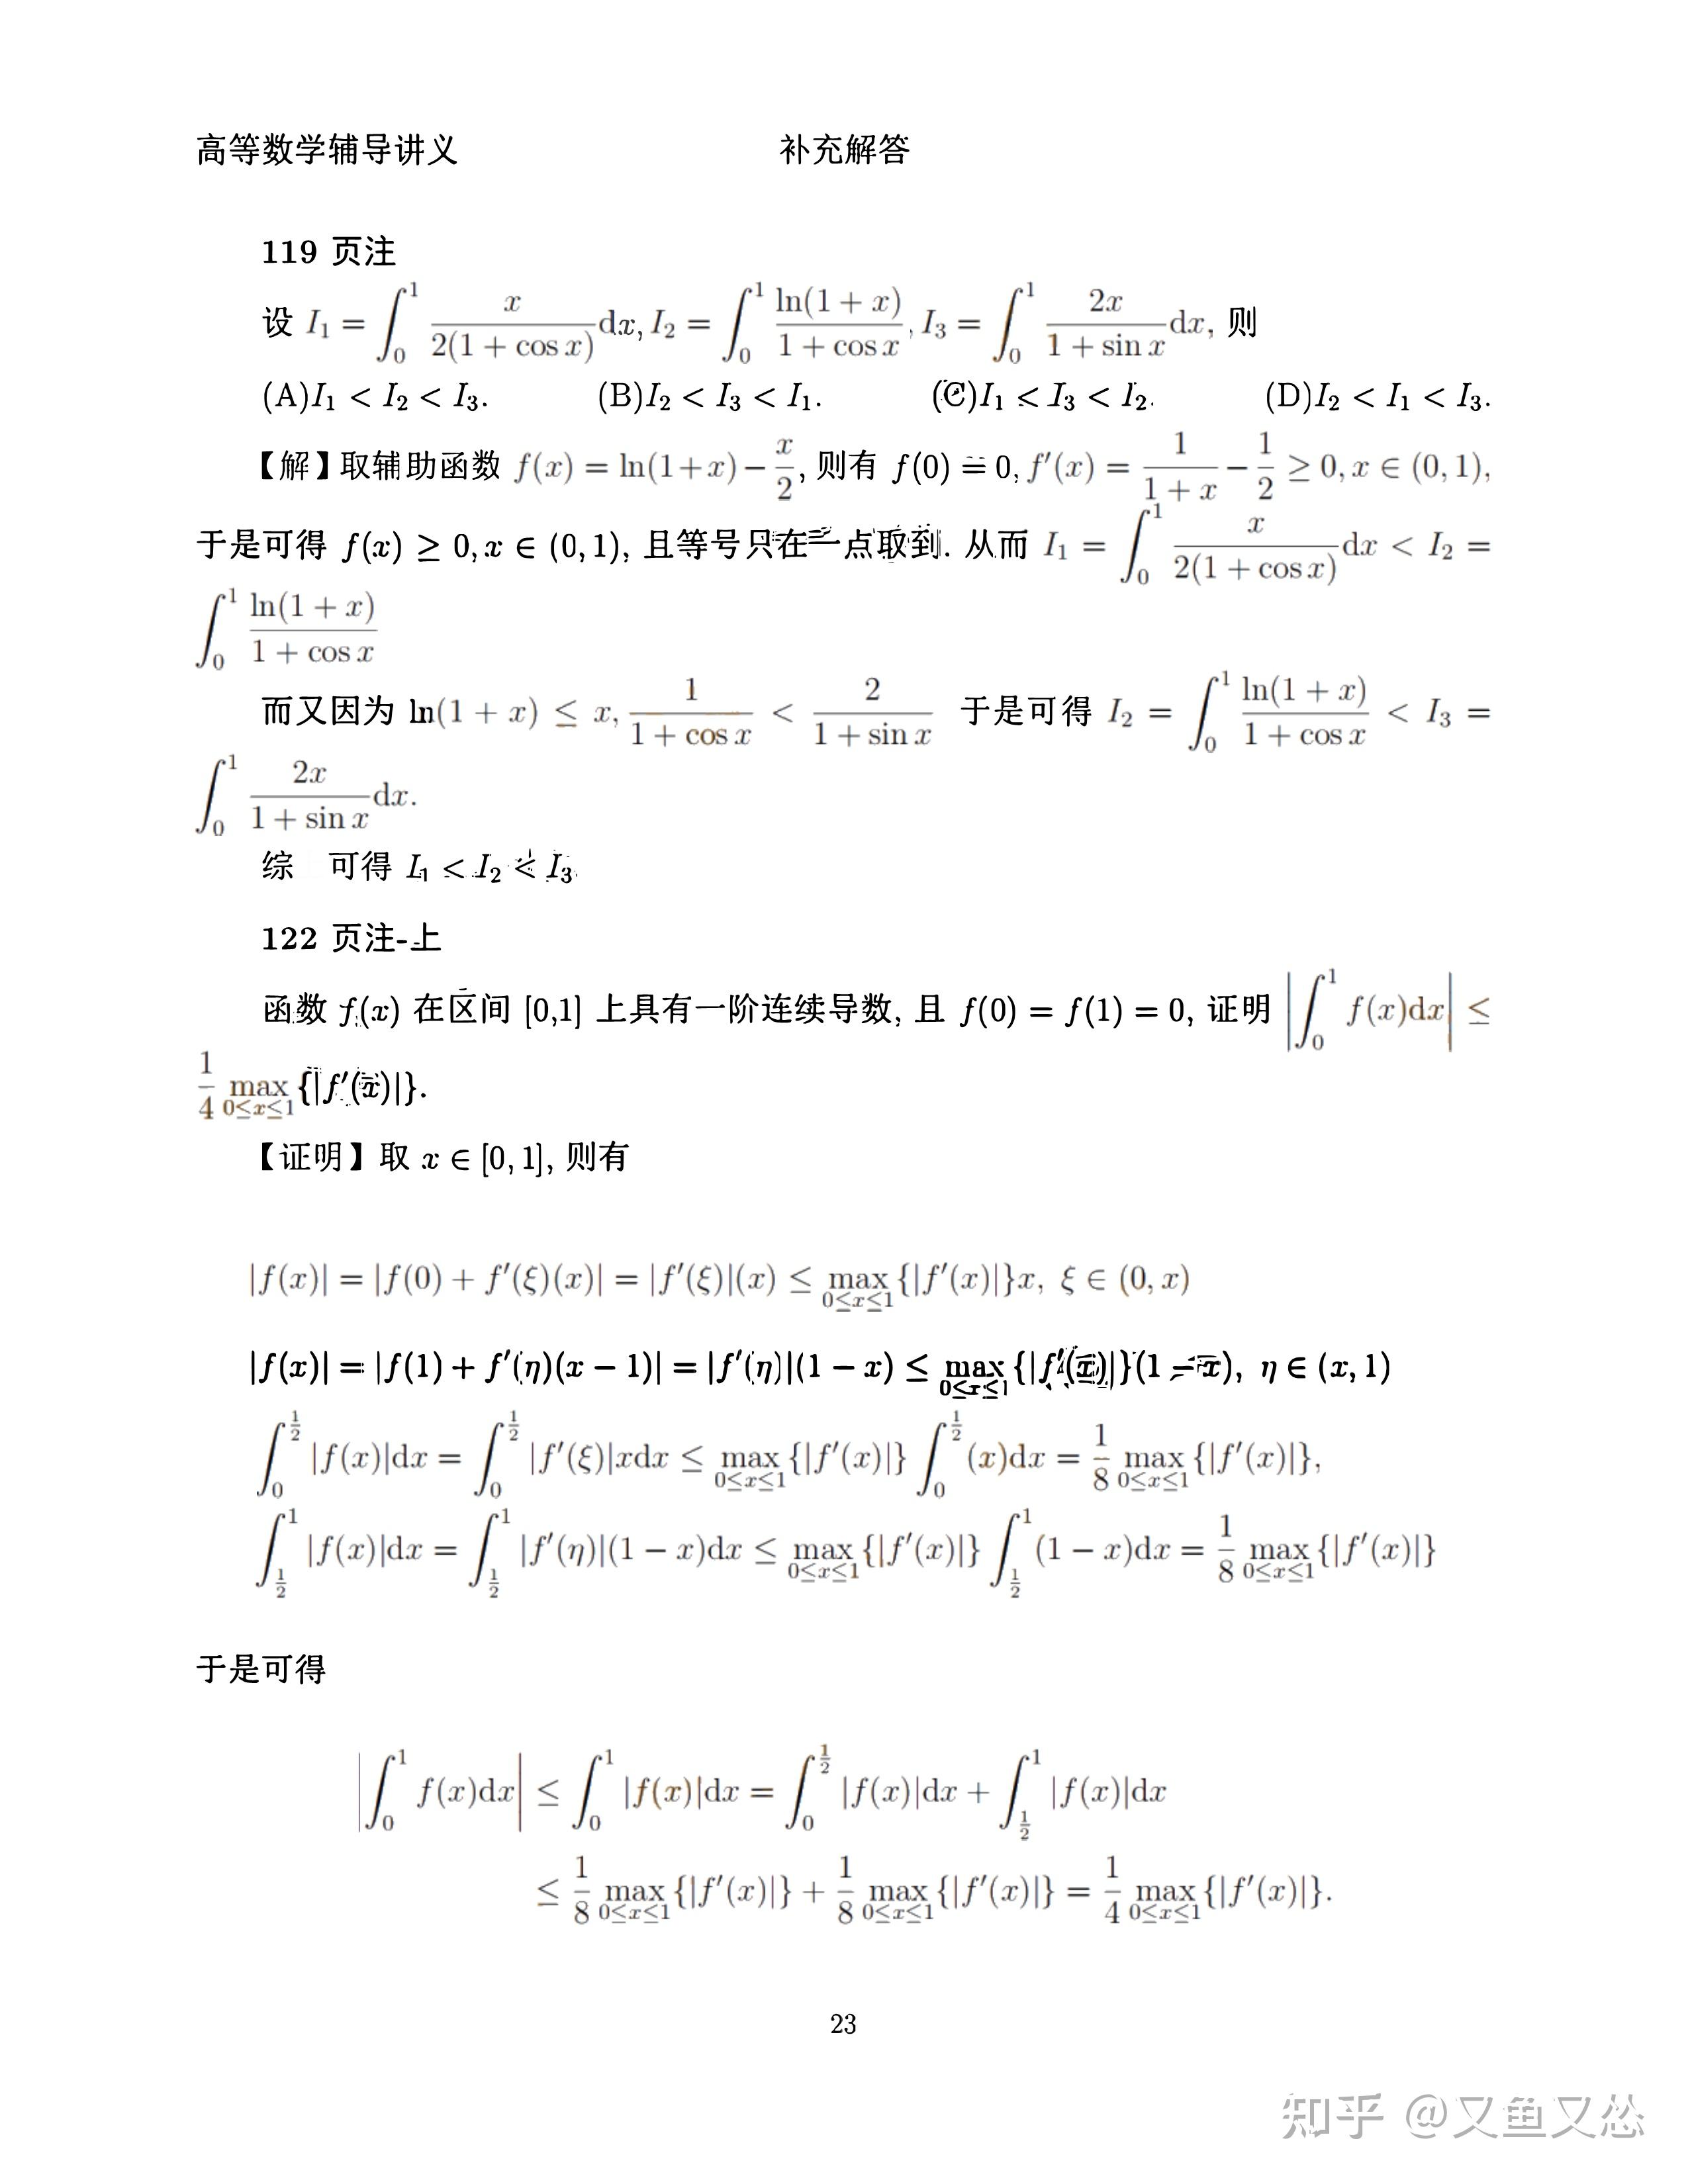 高等数学辅导讲义 补充解答
119 页注
设 $I_1 = \int_0^1 \frac{x}{2(1+\cos x)}\mathrm{d}x, I_2 = \int_0^1 \frac{\ln(1+x)}{1+\cos x}, I_3 = \int_0^1 \frac{2x}{1+\sin x}\mathrm{d}x,$ 则
(A)$I_1 < I_2 < I_3.$ (B)$I_2 < I_3 < I_1.$ (C)$I_1 < I_3 < I_2.$ (D)$I_2 < I_1 < I_3.$
【解】取辅助函数 $f(x) = \ln(1+x) - \frac{x}{2},$ 则有 $f(0) = 0, f'(x) = \frac{1}{1+x} - \frac{1}{2} \geq 0, x \in (0,1),$
于是可得 $f(x) \geq 0, x \in (0,1),$ 且等号只在一点取到. 从而 $I_1 = \int_0^1 \frac{x}{2(1+\cos x)}\mathrm{d}x < I_2 =$
$\int_0^1 \frac{\ln(1+x)}{1+\cos x}$
而又因为 $\ln(1+x) \leq x, \frac{1}{1+\cos x} < \frac{2}{1+\sin x}$ 于是可得 $I_2 = \int_0^1 \frac{\ln(1+x)}{1+\cos x} < I_3 =$
$\int_0^1 \frac{2x}{1+\sin x}\mathrm{d}x.$
综 可得 $I_1 < I_2 < I_3$
122 页注-上
函数 $f(x)$ 在区间 [0,1] 上具有一阶连续导数, 且 $f(0) = f(1) = 0,$ 证明 $\left|\int_0^1 f(x)\mathrm{d}x\right| \leq$
$\frac{1}{4} \max_{0\leq x\leq 1}\{|f'(x)|\}.$
【证明】取 $x \in [0,1],$ 则有
$|f(x)| = |f(0) + f'(\xi)(x)| = |f'(\xi)|(x) \leq \max_{0\leq x\leq 1}\{|f'(x)|\}x, \ \xi \in (0,x)$
$|f(x)| = |f(1) + f'(\eta)(x-1)| = |f'(\eta)|(1-x) \leq \max_{0\leq x\leq 1}\{|f'(x)|\}(1-x), \ \eta \in (x,1)$
$\int_0^{\frac{1}{2}} |f(x)|\mathrm{d}x = \int_0^{\frac{1}{2}} |f'(\xi)|x\mathrm{d}x \leq \max_{0\leq x\leq 1}\{|f'(x)|\} \int_0^{\frac{1}{2}} (x)\mathrm{d}x = \frac{1}{8} \max_{0\leq x\leq 1}\{|f'(x)|\},$
$\int_{\frac{1}{2}}^1 |f(x)|\mathrm{d}x = \int_{\frac{1}{2}}^1 |f'(\eta)|(1-x)\mathrm{d}x \leq \max_{0\leq x\leq 1}\{|f'(x)|\} \int_{\frac{1}{2}}^1 (1-x)\mathrm{d}x = \frac{1}{8} \max_{0\leq x\leq 1}\{|f'(x)|\}$
于是可得
$\left|\int_0^1 f(x)\mathrm{d}x\right| \leq \int_0^1 |f(x)|\mathrm{d}x = \int_0^{\frac{1}{2}} |f(x)|\mathrm{d}x + \int_{\frac{1}{2}}^1 |f(x)|\mathrm{d}x$
$\leq \frac{1}{8} \max_{0\leq x\leq 1}\{|f'(x)|\} + \frac{1}{8} \max_{0\leq x\leq 1}\{|f'(x)|\} = \frac{1}{4} \max_{0\leq x\leq 1}\{|f'(x)|\}.$
23
知乎 @又鱼又怂